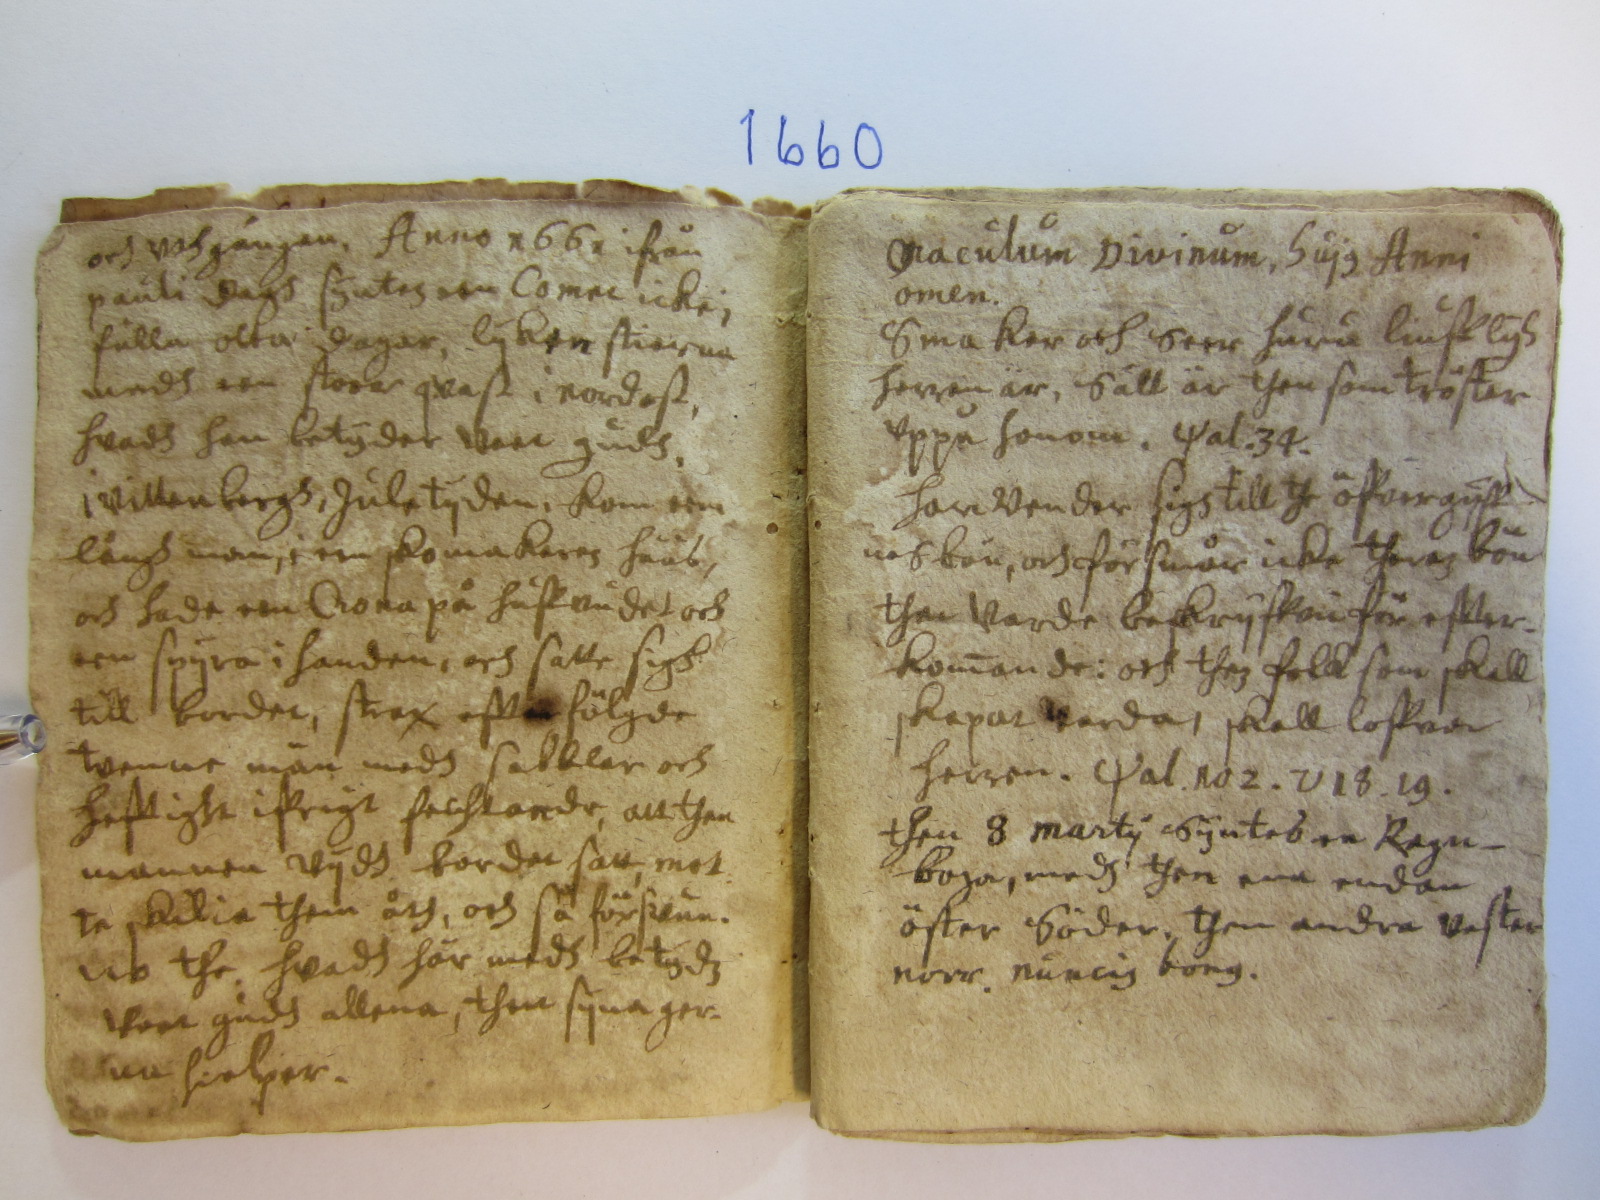 1660
och uthgången. Anno 1661 ifrån
pauli dagh syntes een Comet icke i
fulla otta dagar, lyk en stierna
medh een stoor qvast i nordost,
hvadh han betyder veet gudh.
i Vittenbergh, Juletyden, kom een
långh man, i een skomakares huus,
och hade een Crona på hufvudet och
een spyra i handen, och satte sigh
till bordet, strax efter fölgde
tvenne män medh sabblar och
heftight ifrigt fechtande, att then
mannen vydh bordet satt, mot
te skilia them åth, och så försvun-
no the. hvadh här medh betydz
veet gudh allena, then syna ger-
na hielper.
Oraculum Divinum, hujg Anni
omen.
Smaker och Seer huru liufligh
herren är, Säll är then som tröster
uppå honom. Psal. 34.
han vender sigh till the öfvergifv
nas bön, och försmår icke theres bön
thet varde beskryfvit för efter-
kommande: och thes folk som skall
skapat varda, skall lofva
herren. Psal. 102. v 18. 19.
then 8 martij Syntes en Regn-
boga, medh then ena endan
öster Söder, then andra vester
norr. nuncig bong.